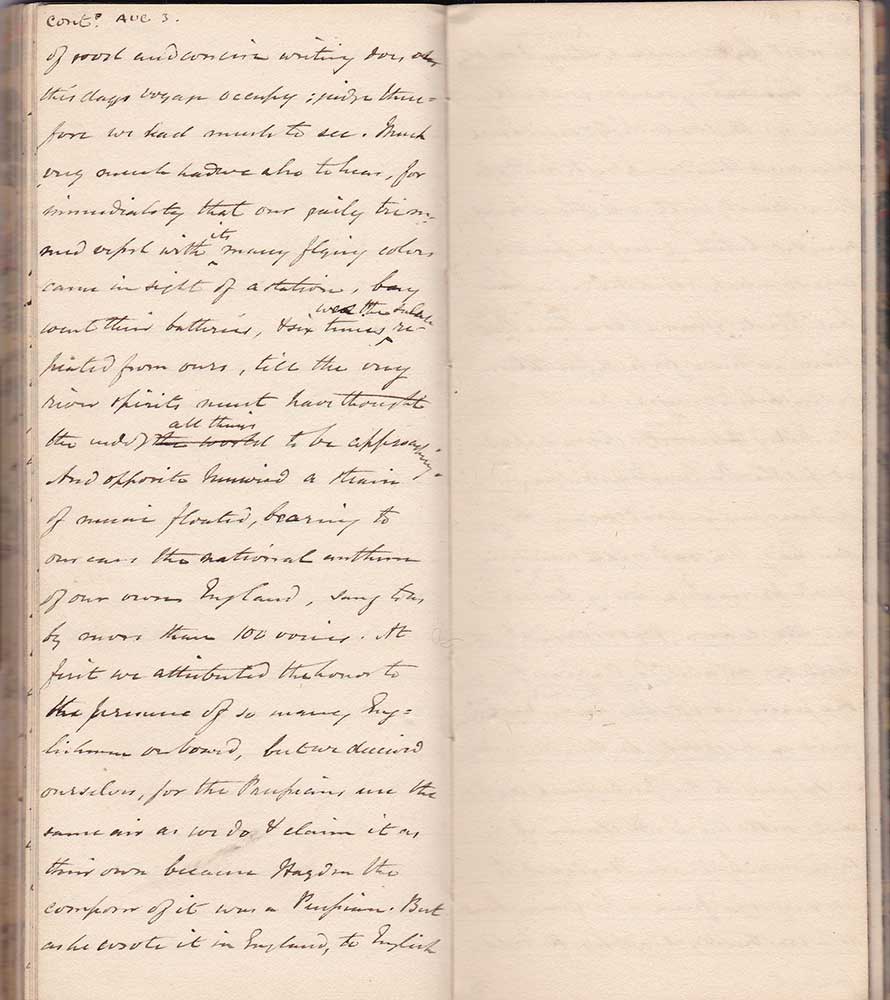 Contd. AUG 3.
of good and concise writing does
this days voyage occupy; judge there=
fore we had much to see. Much
very much had we also to hear, for
immediately that our gaily trim=
med vessel with its many flying colors
came in sight of a station, bang
went their batteries, & six times were the salute re=
peated from ours, till the very
river spirits must have thought
the end of all things the world to be approaching.
And opposite Neuwied a strain
of music floated, bearing to
our ears the national anthem
of our own England, sung to us
by more than 100 voices. At
first we attributed the honor to
the presence of so many Eng=
lishmen on board, but we deceived
ourselves, for the Prussians use the
same air as we do & claim it as
their own because Haydn the
composer of it was a Prussian. But
as he wrote it in England, to English